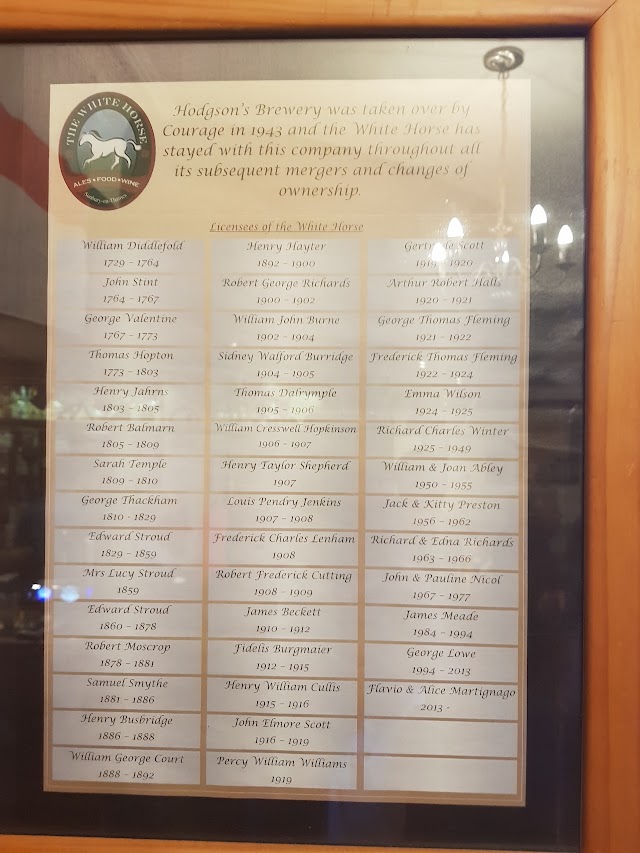 THE WHITE HORSE
ALES • FOOD • WINE
Sunbury-on-Thames
Hodgson's Brewery was taken over by
Courage in 1943 and the White Horse has
stayed with this company throughout all
its subsequent mergers and changes of
ownership.
Licensees of the White Horse
William Diddlefold
1729 - 1764
John Stint
1764 - 1767
George Valentine
1767 - 1773
Thomas Hopton
1773 - 1803
Henry Jahrns
1803 - 1805
Robert Balmarn
1805 - 1809
Sarah Temple
1809 - 1810
George Thackham
1810 - 1829
Edward Stroud
1829 - 1859
Mrs Lucy Stroud
1859
Edward Stroud
1860 - 1878
Robert Moscrop
1878 - 1881
Samuel Smythe
1881 - 1886
Henry Busbridge
1886 - 1888
William George Court
1888 - 1892
Henry Hayter
1892 - 1900
Robert George Richards
1900 - 1902
William John Burne
1902 - 1904
Sidney Walford Burridge
1904 - 1905
Thomas Dalrymple
1905 - 1906
William Cresswell Hopkinson
1906 - 1907
Henry Taylor Shepherd
1907
Louis Pendry Jenkins
1907 - 1908
Frederick Charles Lenham
1908
Robert Frederick Cutting
1908 - 1909
James Beckett
1910 - 1912
Fidelis Burgmaier
1912 - 1915
Henry William Cullis
1915 - 1916
John Elmore Scott
1916 - 1919
Percy William Williams
1919
Gertrude Scott
1919 - 1920
Arthur Robert Halls
1920 - 1921
George Thomas Fleming
1921 - 1922
Frederick Thomas Fleming
1922 - 1924
Emma Wilson
1924 - 1925
Richard Charles Winter
1925 - 1949
William & Joan Abley
1950 - 1955
Jack & Kitty Preston
1956 - 1962
Richard & Edna Richards
1963 - 1966
John & Pauline Nicol
1967 - 1977
James Meade
1984 - 1994
George Lowe
1994 - 2013
Flavio & Alice Martignago
2013 -